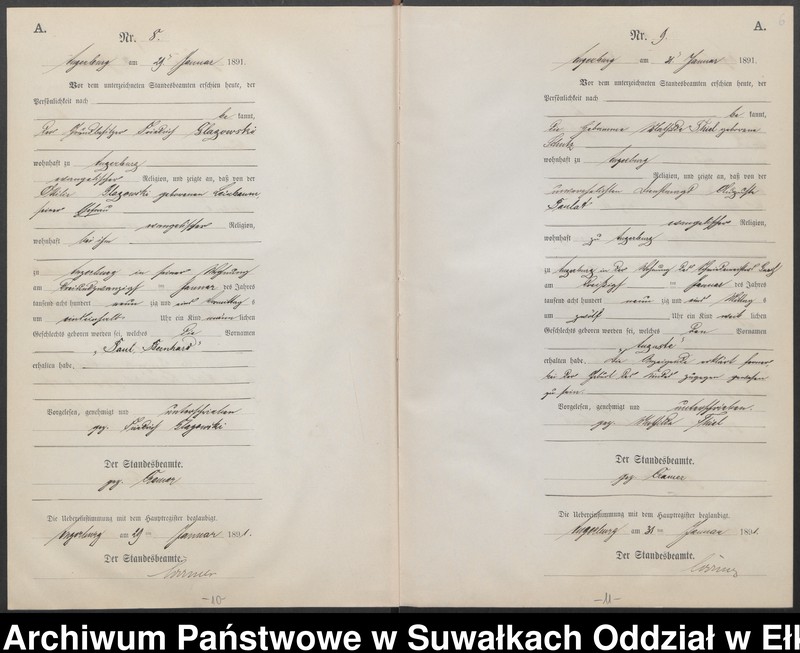 A.
Nr. 8.
Angerburg am 29ten Januar 1891.
Vor dem unterzeichneten Standesbeamten erschien heute, der
Persönlichkeit nach
be kannt,
der Grundbesitzer Friedrich Glazowski
wohnhaft zu Angerburg
evangelischer Religion, und zeigte an, daß von der
Glazowski geborenen
seiner Ehefrau
evangelischer Religion,
wohnhaft bei ihm
zu Angerburg in seiner Wohnung
am Januar des Jahres
tausend acht hundert neun zig und eins Vormittag s
um Uhr ein Kind männ lichen
Geschlechts geboren worden sei, welches die Vornamen
„Paul Bernhard“
erhalten habe.
Vorgelesen, genehmigt und unterschrieben
gez. Friedrich Glazowski
Der Standesbeamte.
gez. Cramer
Die Uebereinstimmung mit dem Hauptregister beglaubigt.
Angerburg am 29ten Januar 1891.
Der Standesbeamte.
Cramer
-10-
A.
Nr. 9.
Angerburg am 31 Januar 1891.
Vor dem unterzeichneten Standesbeamten erschien heute, der
Persönlichkeit nach
be kannt,
die Hebamme Mathilde Thiel geborene
Schulz
wohnhaft zu Angerburg
Religion, und zeigte an, daß von der
unverehelichten Dienstmagd Auguste
evangelischer Religion,
wohnhaft zu Angerburg
zu Angerburg in der Wohnung des
am dreißigsten Januar des Jahres
tausend acht hundert neun zig und eins Mittag s
um zwölf Uhr ein Kind weib lichen
Geschlechts geboren worden sei, welches den Vornamen
„Auguste“
erhalten habe. Die Anzeigende erklärt ferner
bei der Geburt des Kindes zugegen gewesen
zu sein
Vorgelesen, genehmigt und unterschrieben.
gez. Mathilde Thiel
Der Standesbeamte.
gez. Cramer
Die Uebereinstimmung mit dem Hauptregister beglaubigt.
Angerburg am 31ten Januar 1891.
Der Standesbeamte.
Cramer
-11-
Archiwum Państwowe w Suwałkach Oddział w Ełk